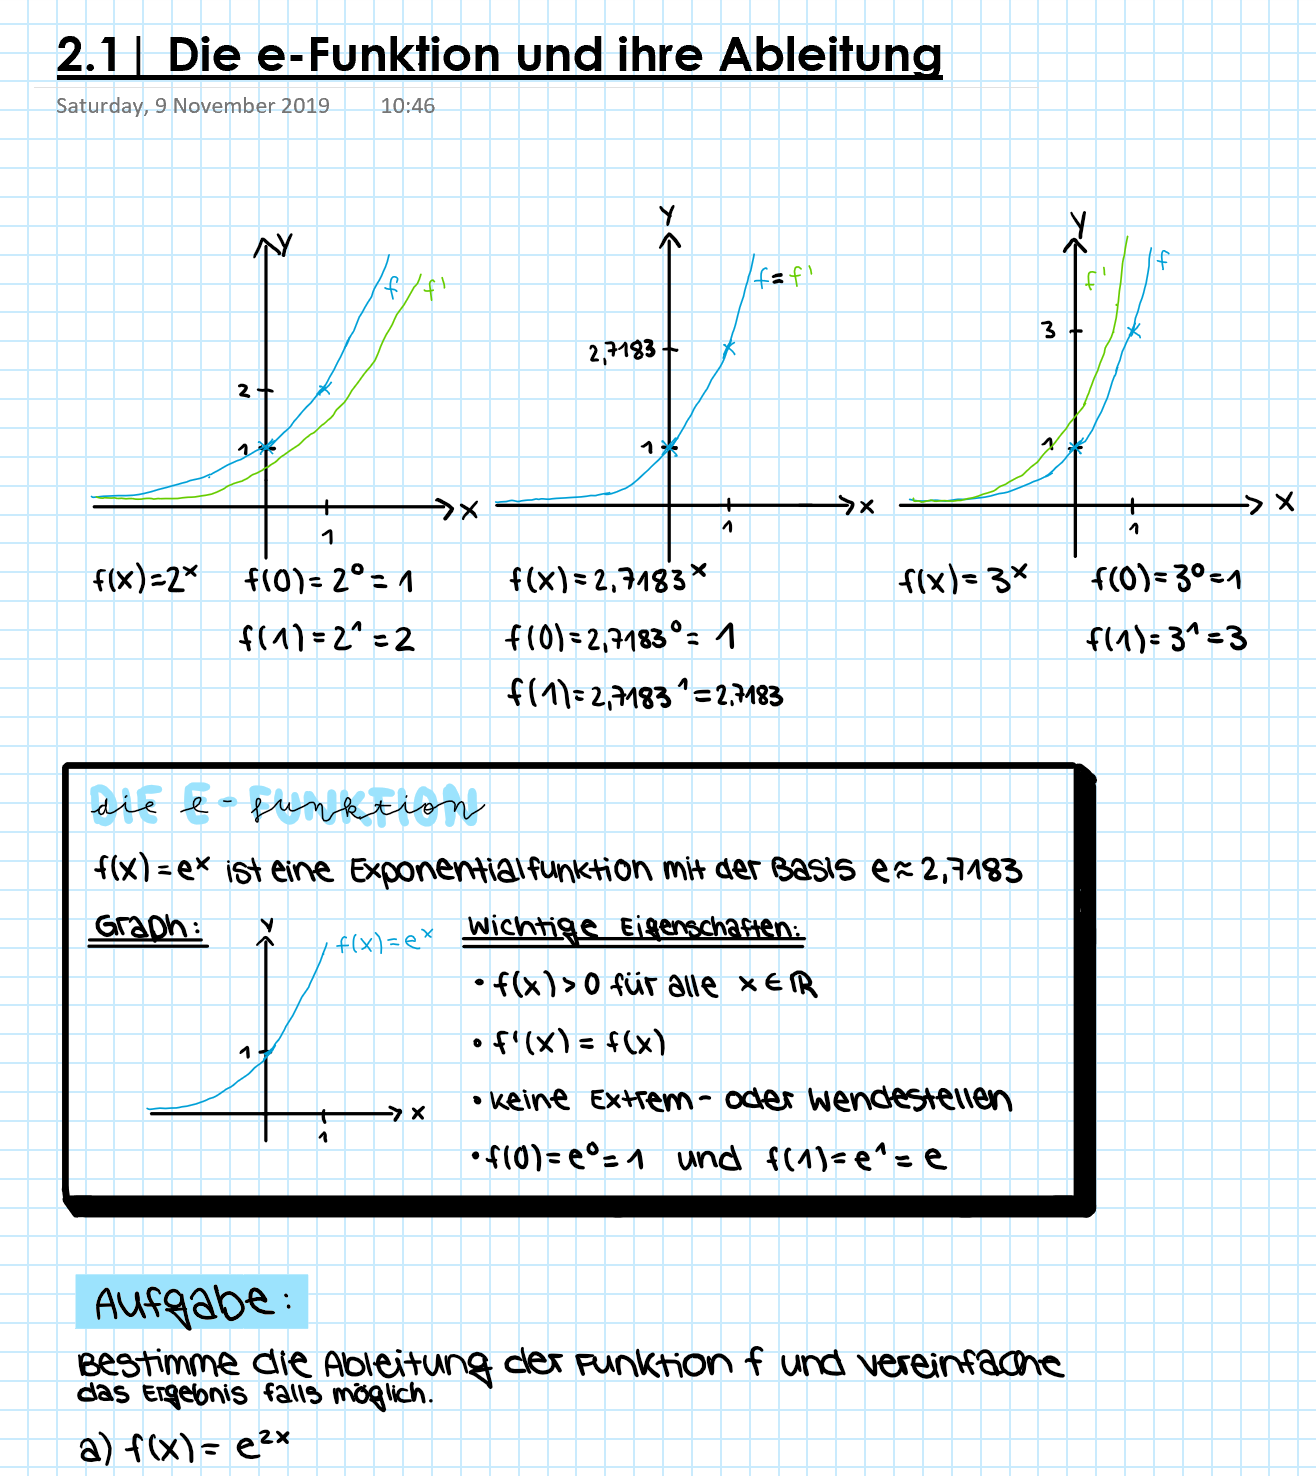 2.1| Die e-Funktion und ihre Ableitung
Saturday, 9 November 2019 10:46
Y
f f'
2
1
X
1
Y
f = f'
2,7183
1
X
1
Y
f' f
3
1
X
1
f(x)=2ˣ f(0)=2⁰=1
f(1)=2¹=2
f(x)=2,7183ˣ
f(0)=2,7183⁰=1
f(1)=2,7183¹=2,7183
f(x)=3ˣ f(0)=3⁰=1
f(1)=3¹=3
DIE E-FUNKTION
die e-funktion
f(x)=eˣ ist eine Exponentialfunktion mit der Basis e≈2,7183
Graph:
Y
f(x)=eˣ
1
X
1
Wichtige Eigenschaften:
• f(x)>0 für alle x∈ℝ
• f'(x)=f(x)
• keine Extrem- oder Wendestellen
• f(0)=e⁰=1 und f(1)=e¹=e
Aufgabe:
Bestimme die Ableitung der Funktion f und vereinfache
das Ergebnis falls möglich.
a) f(x)=e²ˣ